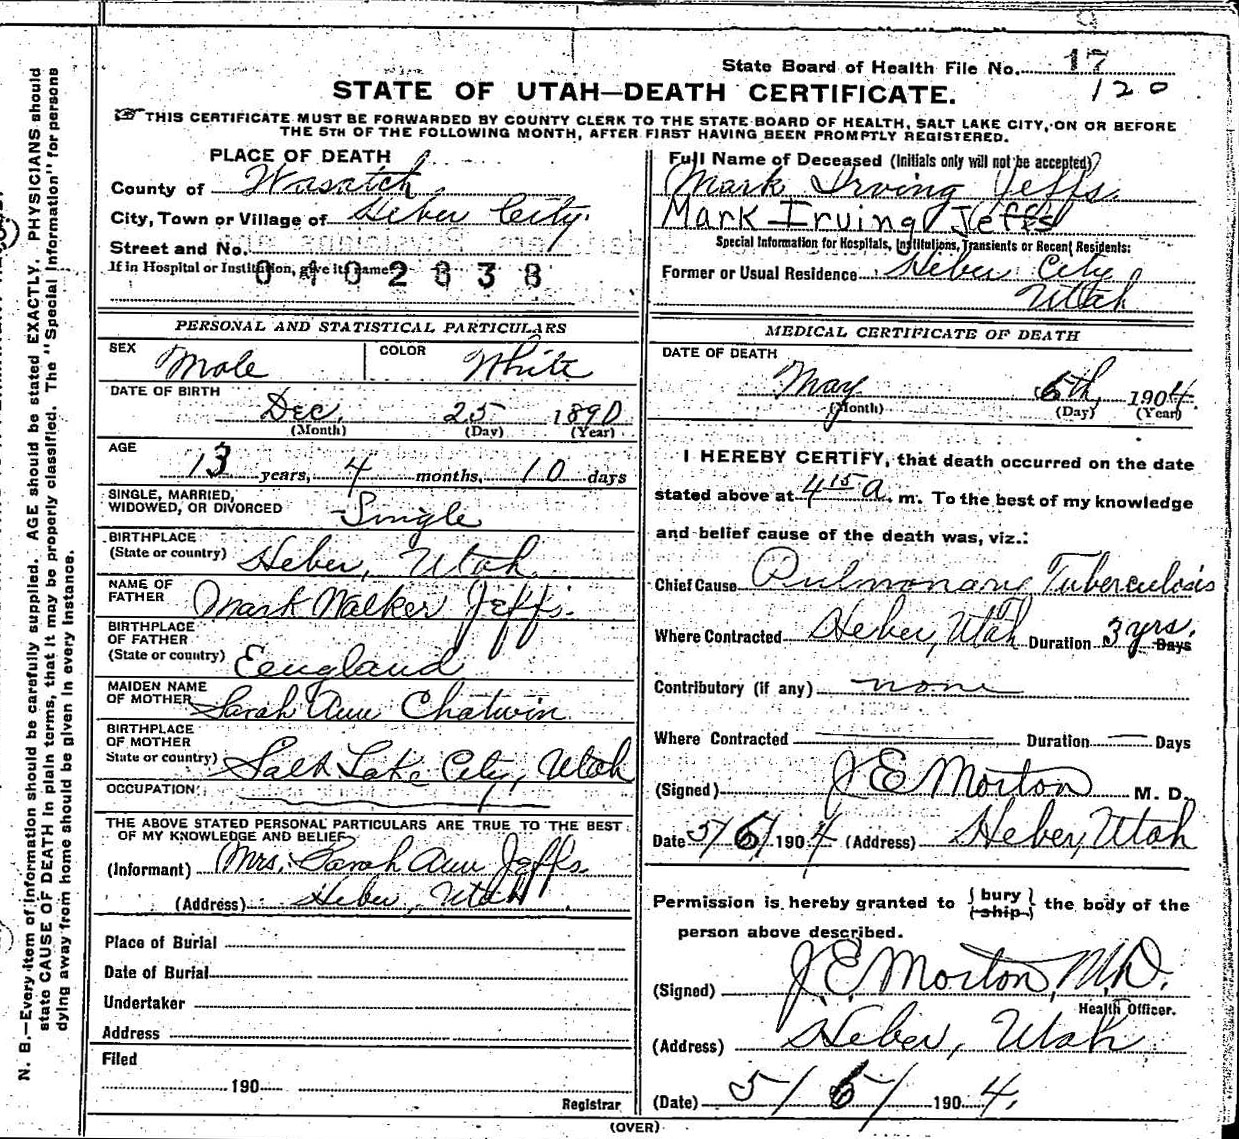 State Board of Health File No. 17
120
STATE OF UTAH—DEATH CERTIFICATE.
THIS CERTIFICATE MUST BE FORWARDED BY COUNTY CLERK TO THE STATE BOARD OF HEALTH, SALT LAKE CITY, ON OR BEFORE
THE 5TH OF THE FOLLOWING MONTH, AFTER FIRST HAVING BEEN PROMPTLY REGISTERED.
PLACE OF DEATH
County of Wasatch
City, Town or Village of Heber City.
Street and No.
If in Hospital or Institution, give its name
0402838
PERSONAL AND STATISTICAL PARTICULARS
SEX Male COLOR White
DATE OF BIRTH
Dec. 25 1890
(Month) (Day) (Year)
AGE
13 years, 4 months, 10 days
SINGLE, MARRIED,
WIDOWED, OR DIVORCED Single
BIRTHPLACE
(State or country) Heber, Utah
NAME OF
FATHER Mark Walker Jeffs.
BIRTHPLACE
OF FATHER
(State or country) Eengland
MAIDEN NAME
OF MOTHER Sarah Ann Chatwin
BIRTHPLACE
OF MOTHER
State or country) Salt Lake City, Utah
OCCUPATION
THE ABOVE STATED PERSONAL PARTICULARS ARE TRUE TO THE BEST
OF MY KNOWLEDGE AND BELIEF
(Informant) Mrs. Sarah Ann Jeffs.
(Address) Heber, Utah
Place of Burial
Date of Burial
Undertaker
Address
Filed
190
Registrar
Full Name of Deceased (Initials only will not be accepted)
Mark Irving Jeffs.
Mark Irving Jeffs
Special Information for Hospitals, Institutions, Transients or Recent Residents:
Former or Usual Residence Heber City
Utah
MEDICAL CERTIFICATE OF DEATH
DATE OF DEATH
May 6th, 1904.
(Month) (Day) (Year)
I HEREBY CERTIFY, that death occurred on the date
stated above at 4 15 a. m. To the best of my knowledge
and belief cause of the death was, viz.:
Chief Cause Pulmonary Tuberculosis
Where Contracted Heber, Utah Duration 3 yrs. Days
Contributory (if any) none
Where Contracted Duration Days
(Signed) J E Morton M. D.
Date 5/6/1904 (Address) Heber, Utah
Permission is hereby granted to { bury
ship } the body of the
person above described.
(Signed) J. E. Morton, M.D.
Health Officer.
(Address) Heber, Utah
(Date) 5/6/1904.
(OVER)
N. B.—Every item of information should be carefully supplied. AGE should be stated EXACTLY. PHYSICIANS should
state CAUSE OF DEATH in plain terms, that it may be properly classified. The "Special Information" for persons
dying away from home should be given in every instance.